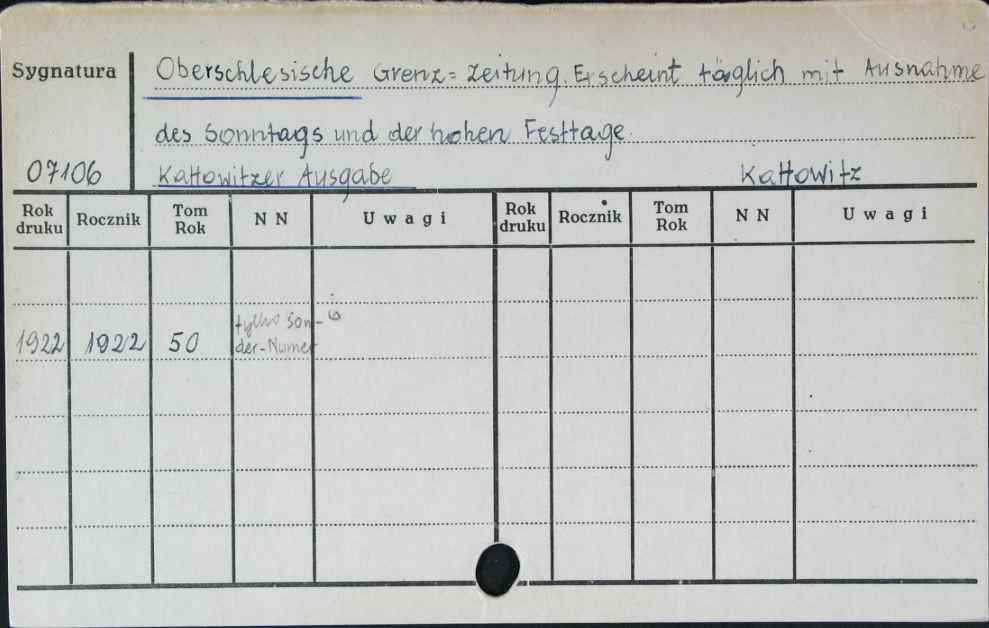 Sygnatura
Oberschlesische Grenz= Zeitung. Erscheint täglich mit Ausnahme
des Sonntags und der hohen Festtage.
07106
Kattowitzer Ausgabe Kattowitz
Rok druku Rocznik Tom Rok N N Uwagi Rok druku Rocznik Tom Rok N N Uwagi
1922 1922 50 tylko Son-
der-Numer